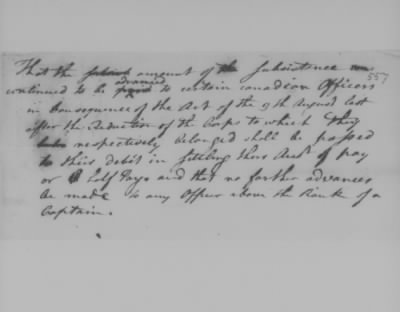 That the amount of Subsistence
advanced
continued to be paid to certain canadian Officers 557
in Consequence of the Act of the 9th August last
after the Reduction of the Corps to which they
respectively belonged shall be passed
to their debit in settling their Accts of pay
or half Pay and that no farther advances
be made to any Officer above the Rank of a
Captain.